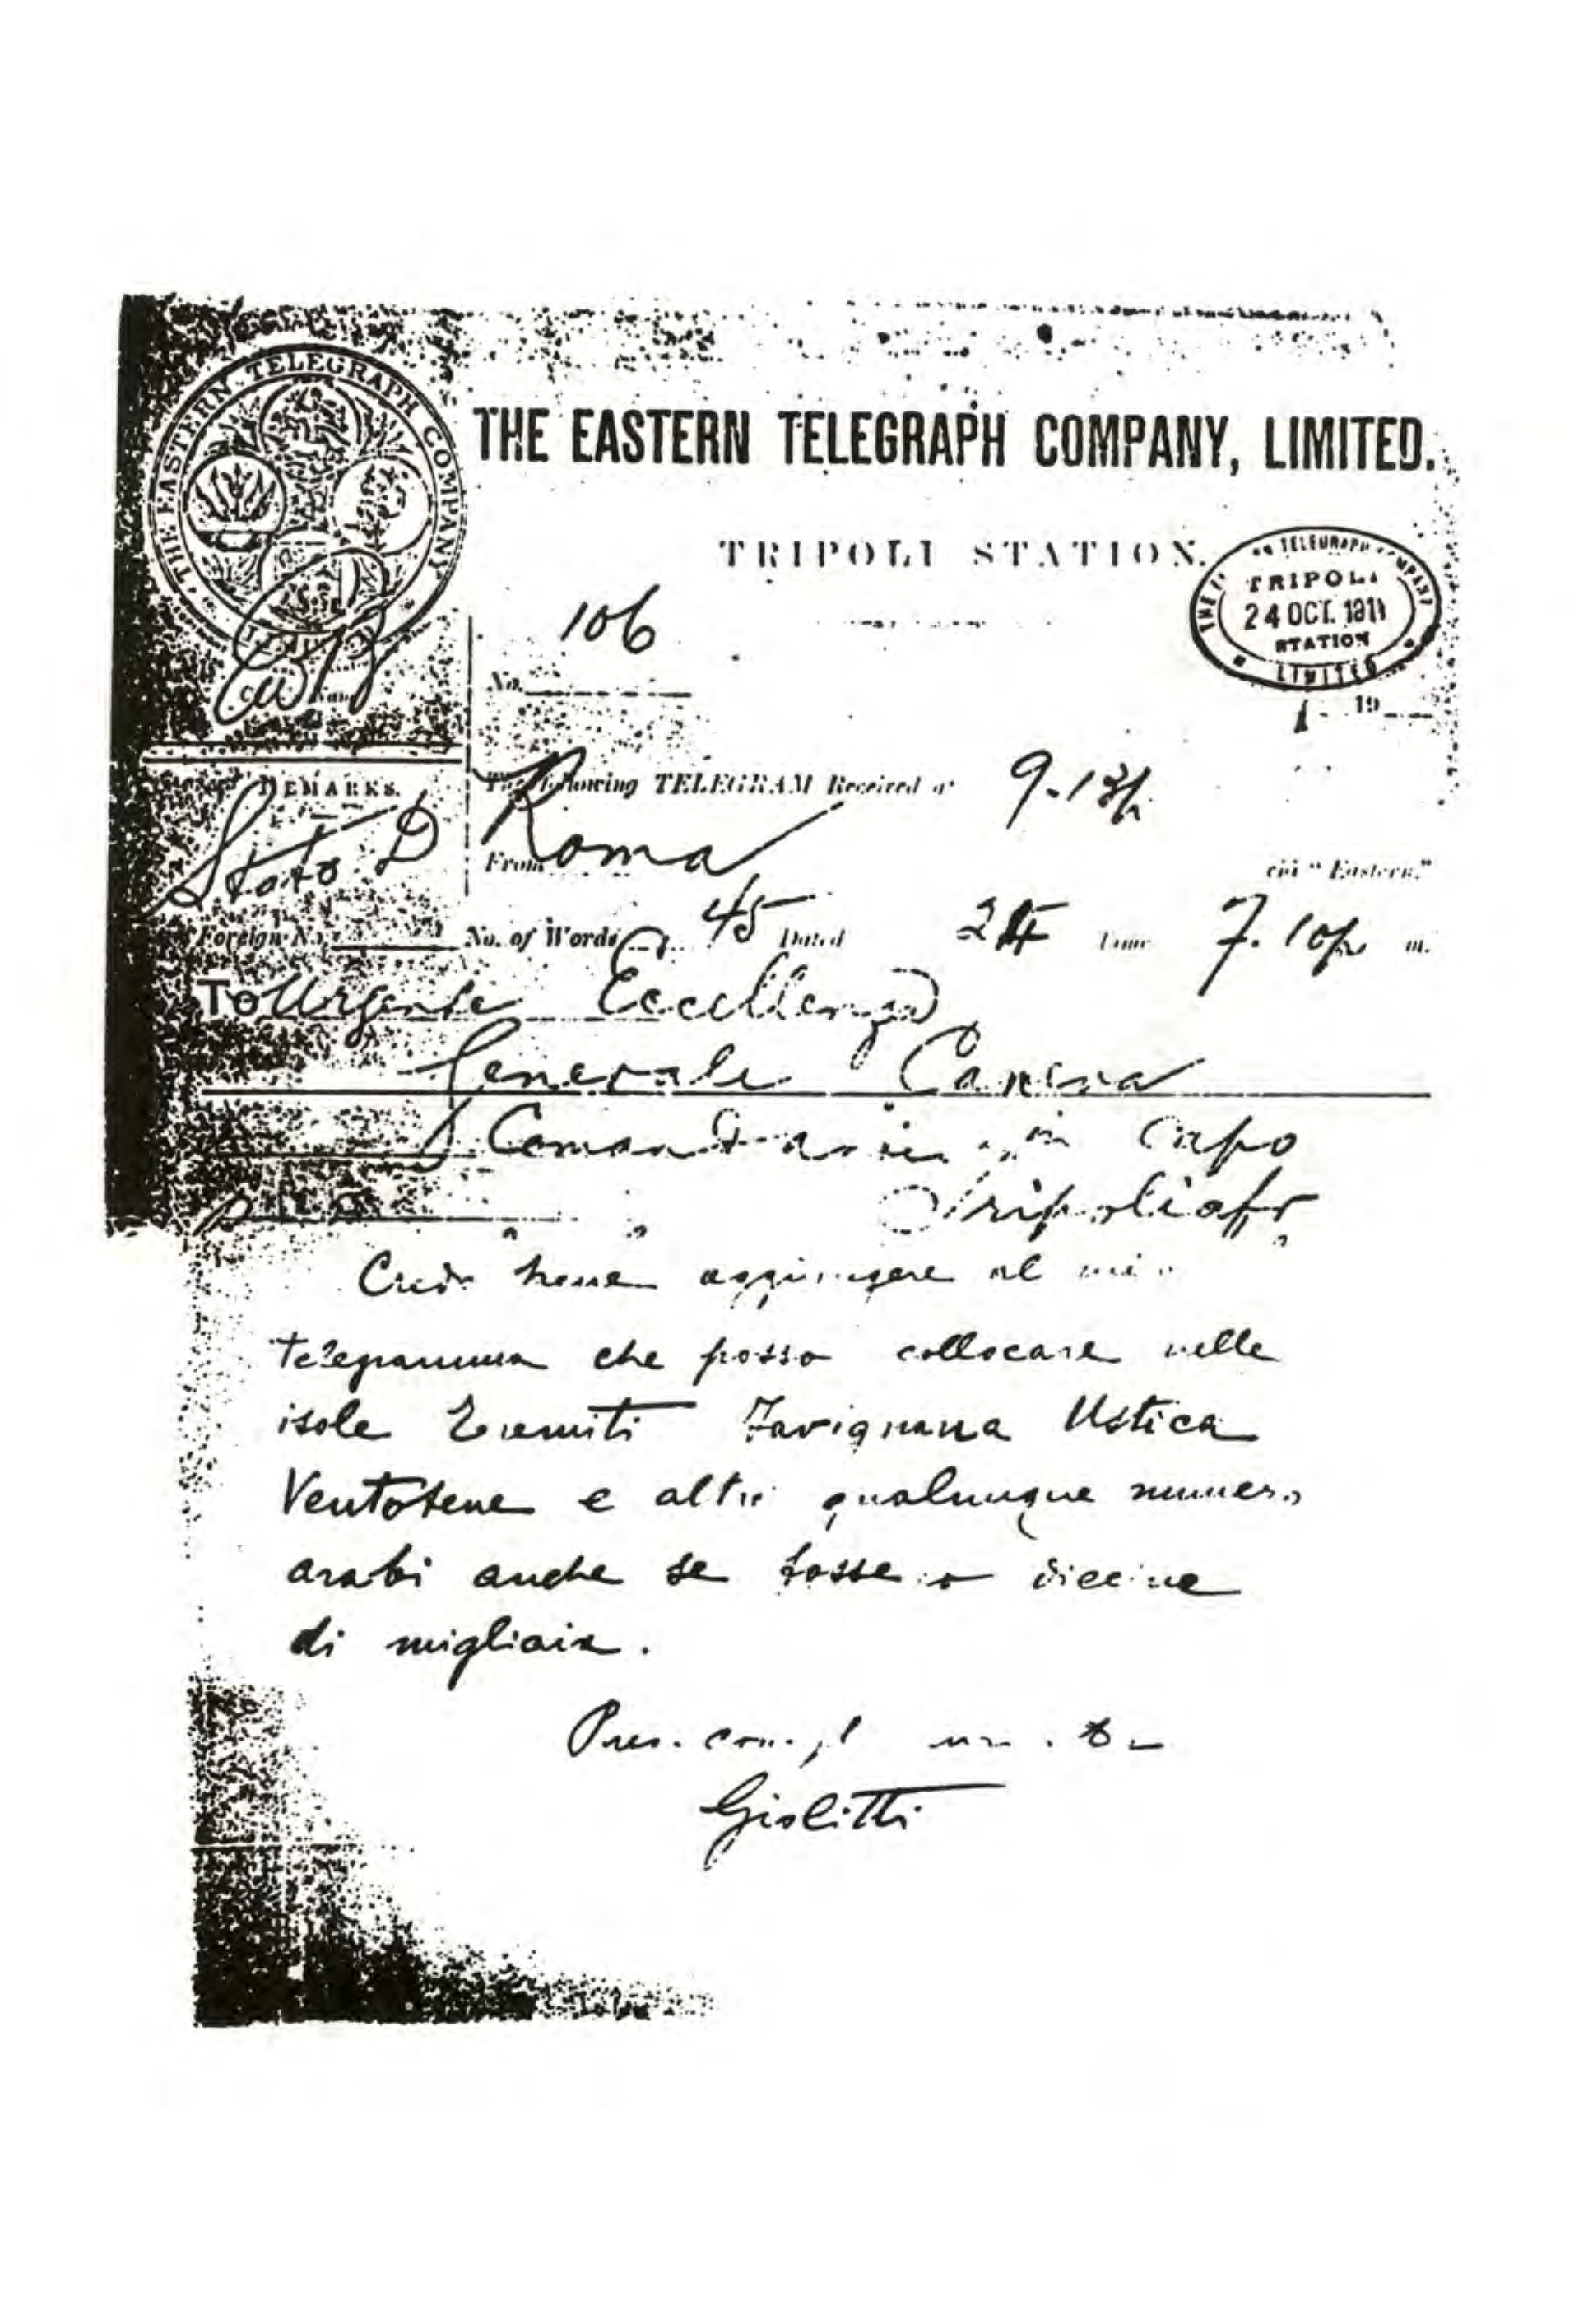 THE EASTERN TELEGRAPH COMPANY
THE EASTERN TELEGRAPH COMPANY, LIMITED.
TRIPOLI STATION.
TELEGRAPH COMPANY
TRIPOLI
24 OCT. 1911
STATION
LIMITED
106
No.
19
REMARKS.
The following TELEGRAM Received at 9.13p
Stato D
From Roma
via "Eastern."
Foreign No. No. of Words 45 Dated 24 Time 7.10p m.
To Urgente Eccellenza
Generale Caneva
in Capo
Tripoliafr
Credo bene aggiungere al mio
telegramma che posso collocare nelle
isole Tremiti Favignana Ustica
Ventotene e altre qualunque numero
arabi anche se fossero diecine
di migliaia.
Pres.
Giolitti